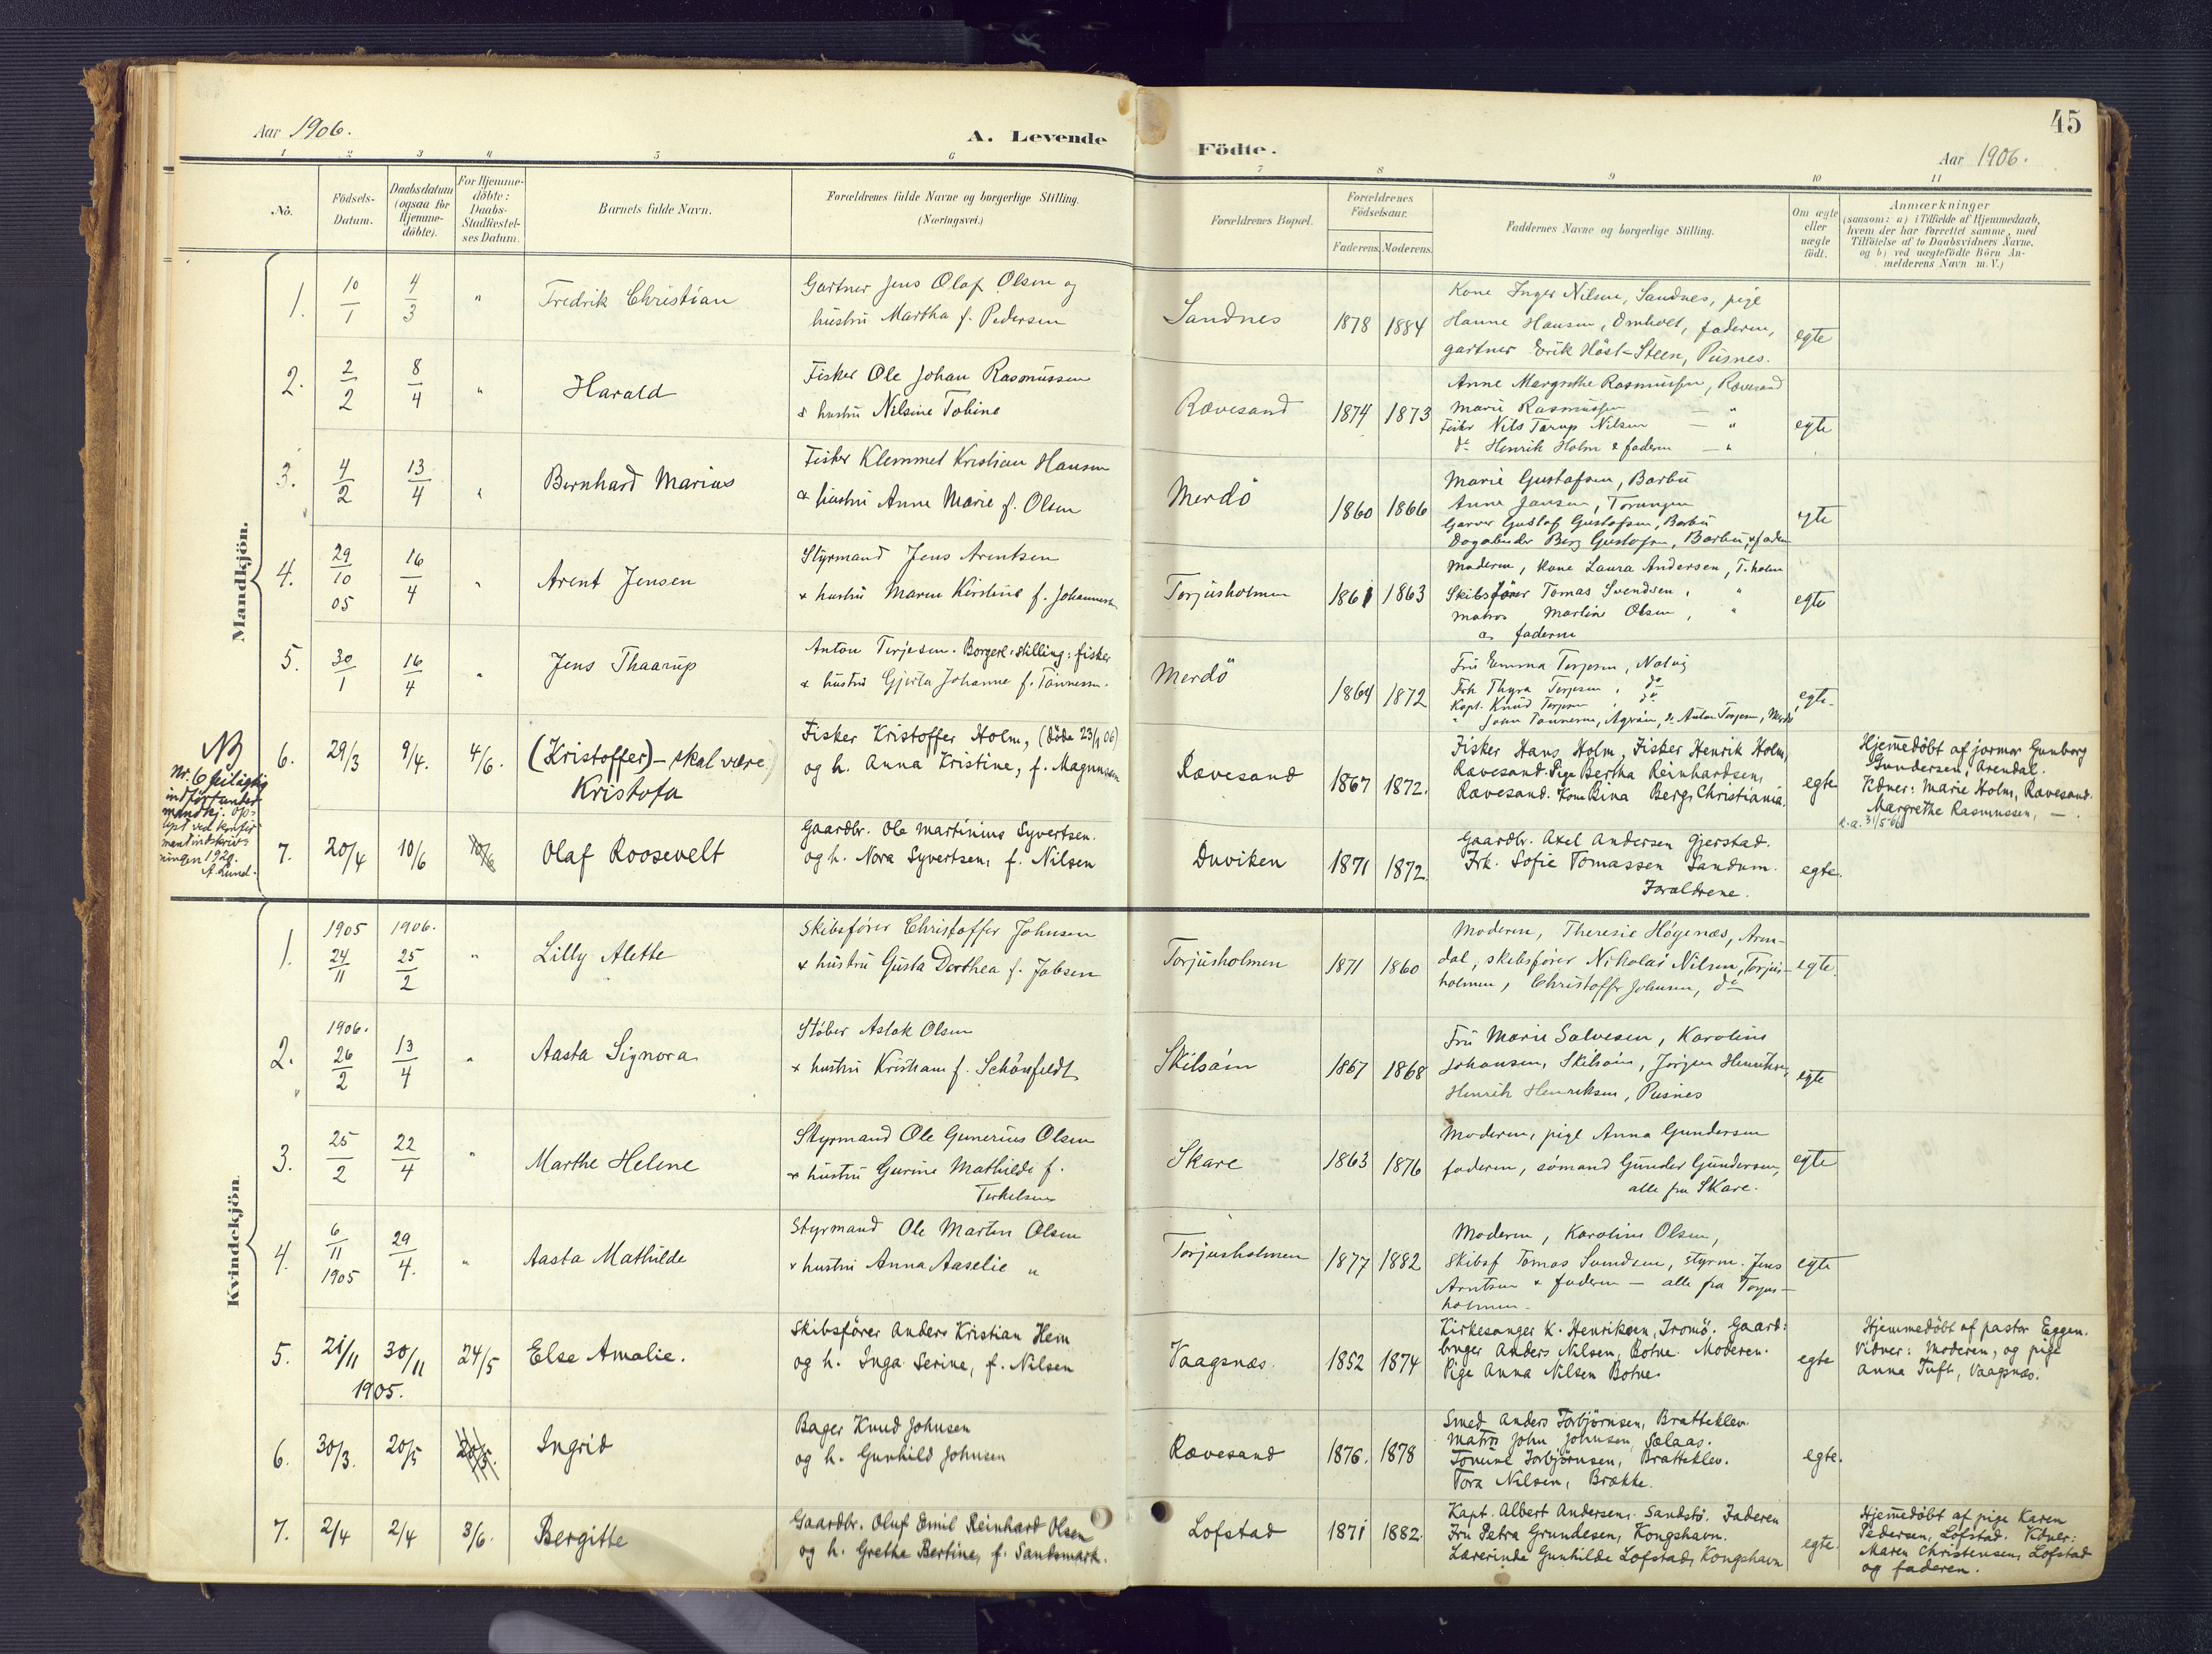 45
Aar 1906.
A. Levende Födte.
Aar 1906.
1 2 3 4 5 6 7 8 9 10 11
No.
Födsels-Datum.
Daabsdatum (ogsaa for Hjemme-döbte).
For Hjemme-döbte: Daabs-Stadfæstel-ses Datum.
Barnets fulde Navn.
Forældrenes fulde Navne og borgerlige Stilling.
(Næringsvei.)
Forældrenes Bopæl.
Forældrenes Födselsaar.
Faderens. Moderens.
Faddernes Navne og borgerlige Stilling.
Om ægte eller uægte födt.
Anmærkninger
(saasom: a) i Tilfælde af Hjemmedaab,
hvem der har forrettet samme, med
Tilföielse af to Daabsvidners Navne,
og b) ved uægtefödte Börn An-
melderens Navn m. V.)
Mandkjön.
1. 10/1 4/3 " Fredrik Christian
Gartner Jens Olaf Olsen og
hustru Martha f. Pedersen
Sandnes 1878 1884
Kone Inger Nilsen, Sandnes, pige
Hanne Hansen, Omholt, faderen,
gartner Erik Höst-Steen, Pusnes.
egte
2. 2/2 8/4 " Harald
Fisker Ole Johan Rasmussen
& hustru Nilsine Tobine
Rævesand 1874 1873
Anne Margrethe Rasmussen, Rævesand
Marie Rasmussen — "
Fisker Nils Tarup Nilsen — "
do Henrik Holm & faderen — "
egte
3. 4/2 13/4 " Bernhard Marius
Fisker Klemmet Kristian Hansen
& hustru Anne Marie f. Olsen
Merdö 1860 1866
Marie Gustafsen, Barbu
Anne Jansen, Torungen
Garver Gustaf Gustafsen, Barbu
Berg Gustafsen, Barbu, & faderen
egte
4. 29/10 05 16/4 " Arent Jensen
Styrmand Jens Arentsen
& hustru Maren Kirstine f. Johannesen
Torjusholmen 1861 1863
Moderen, kone Laura Andersen, T.holm
Skibsförer Tomas Svendsen, "
Matros Martin Olsen, "
& faderen
egte
5. 30/1 16/4 " Jens Thaarup
Anton Terjesen. Borgerl. stilling: fisker
& hustru Gjerta Johanne f. Tönnesen.
Merdö 1864 1872
Fru Emma Terjesen, Natvig
Frk Thyra Terjesen, do
Kapt. Knud Terjesen, do
" John Tönnesen, & Anton Terjesen, Merdö
egte.
NB
Nr. 6 feilagtig
indfört under
mandkj. Op-
lyst ved konfir
mantindskriv-
ningen 1920.
A. Lund.
6. 29/3 9/4. 4/6. (Kristoffer) - skal være
Kristofa
Fisker Kristoffer Holm, (döde 23/1 06)
og h. Anna Kristine, f. Magnusen
Rævesand 1867 1872.
Fisker Hans Holm, Fisker Henrik Holm,
Rævesand. Pige Bertha Reinhardsen,
Rævesand. Kone Rina Berg, Christiania.
egte
Hjemmedöbt af jormor Gunborg
Gundersen, Arendal.
Vidner: Marie Holm, Rævesand.
Margrethe Rasmussen, —.
7. 20/4 10/6 10/6 Olaf Roosevelt
Gaardbr. Ole Martinius Syvertsen.
og h. Nora Syvertsen, f. Nilsen
Duviken 1871 1872.
Gaardbr. Axel Andersen Gjerstad.
Frk. Sofie Tomassen Sandum.
Forældrene.
egte.
Kvindekjön.
1905 1906.
1. 24/11 25/2 " Lilly Alette
Skibsförer Christoffer Johnsen
& hustru Gusta Dorthea f. Jabsen
Torjusholmen 1871 1860
Moderen, Theresie Høgenæs, Aren-
dal, skibsförer Nikolai Nilsen, Torjus-
holmen, Christoffer Johnsen, do
egte.
1906.
2. 26/2 13/4 " Aasta Signora
Stöber Aslak Olsen
& hustru Kristiane f. Schönfeldt
Skilsöin 1867 1868
Fru Marie Salvesen, Karoline
Johansen, Skilsöin, Jörgen Henriksen,
Henrik Henriksen, Pusnes
egte
3. 25/2 22/4 " Marthe Helene
Styrmand Ole Gunerius Olsen
& hustru Gurine Mathilde f.
Terkelsen
Skare 1863 1876
Moderen, pige Anna Gundersen
faderen, sömand Gunder Gundersen,
alle fra Skare.
egte
4. 6/11 1905 29/4. " Aasta Mathilde
Styrmand Ole Martin Olsen
& hustru Anna Aaselie "
Torjusholmen 1877 1882
Moderen, Karoline Olsen,
Skibsf Tomas Svendsen, styrm. Jens
Arntsen & faderen — alle fra Torjus-
holmen.
egte
5. 21/11 30/11 24/5 Else Amalie.
1905.
Skibsförer Anders Kristian Hein
og h. Inga Serine, f. Nilsen
Vaagsnæs. 1852 1874
Kirkesanger K. Henriksen, Tromö. Gaard-
bruger Anders Nilsen, Botne. Moderen.
Pige Anna Nilsen Botne.
egte
Hjemmedöbt af pastor Eggen.
Vidner: Moderen, og pige
Anna Tuft, Vaagsnæs.
6. 30/3. 20/5 20/5. Ingrid
Bager Knud Johnsen
og h. Gunhild Johnsen
Rævesand 1876. 1878
Smed Anders Torbjörnsen, Bratteklev.
Matros John Johnsen, Sælaas.
Tomine Torbjörnsen, Bratteklev.
Tora Nilsen, Brække.
egte.
7. 2/4 2/4 3/6. Bergitte
Gaardbr. Oluf Emil Reinhard Olsen
og h. Grethe Bertine, f. Sandsmark.
Lofstad 1871 1882.
Kapt. Albert Andersen, Sandstö. Faderen
Fru Petra Grundesen, Kongshavn.
Lærerinde Gunhilde Lofstad, Kongshavn
egte.
Hjemmedöbt af pige Karen
Pedersen, Lofstad. Vidner:
Maren Christensen, Lofstad
og faderen.